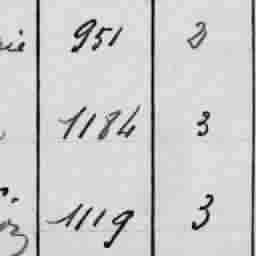 951 2
1184 3
1119 3